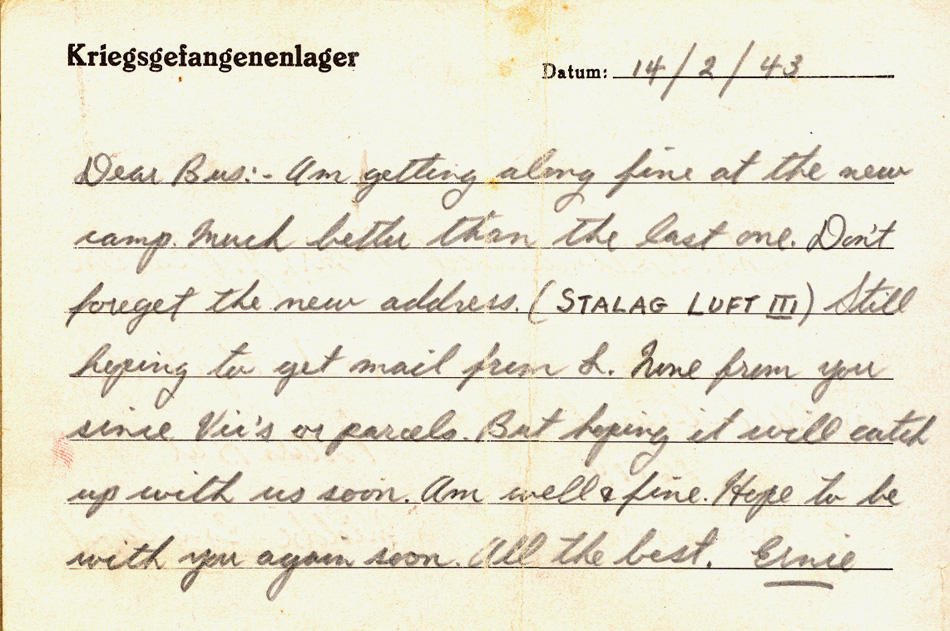 Kriegsgefangenenlager
Datum: 14/2/43
Dear Bus:- Am getting along fine at the new
camp. Much better than the last one. Don't
foreget the new address. (STALAG LUFT III) Still
hoping to get mail from L. None from you
since Vic's or parcels. But hoping it will catch
up with us soon. Am well & fine. Hope to be
with you again soon. All the best. Ernie